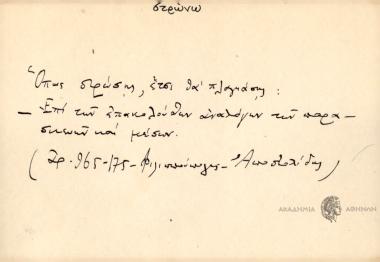 στρώνω
Ὅπως στρώσῃς, ἔτσι θὰ πλαγιάσῃς :
– Ἐπὶ τῶν ἐπακολούθων ἀναλόγων τῶν παρα-
σκευῶν καὶ μέσων.
( Χρ. 965-175 – Φιλιππούπολις – Ἀποστολίδης )
ΑΚΑΔΗΜΙΑ ΑΘΗΝΩΝ